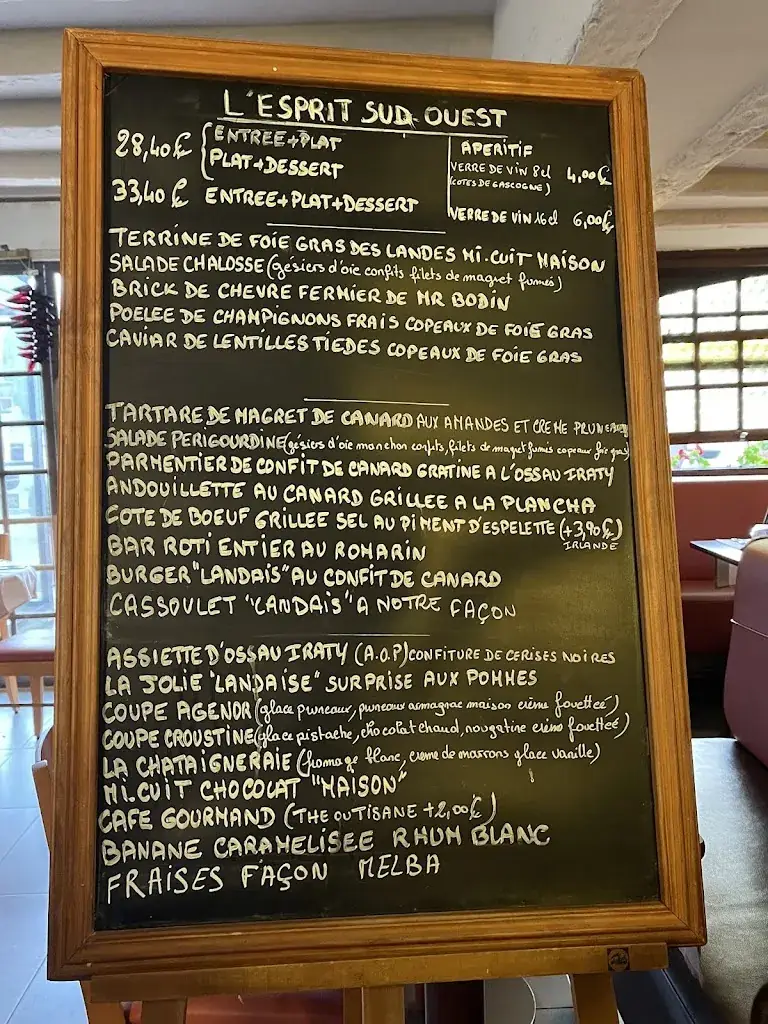 L'ESPRIT SUD-OUEST
28,40€ ENTREE+PLAT
PLAT+DESSERT
33,40€ ENTREE+PLAT+DESSERT
APERITIF
VERRE DE VIN 8cl 4,00€
(COTES DE GASCOGNE)
VERRE DE VIN 16cl 6,00€
TERRINE DE FOIE GRAS DES LANDES MI.CUIT MAISON
SALADE CHALOSSE (gésiers d'oie confits filets de magret fumés)
BRICK DE CHEVRE FERMIER DE MR BODIN
POELEE DE CHAMPIGNONS FRAIS COPEAUX DE FOIE GRAS
CAVIAR DE LENTILLES TIEDES COPEAUX DE FOIE GRAS
TARTARE DE MAGRET DE CANARD AUX AMANDES ET CREME PRUNEAUX
SALADE PERIGOURDINE (gésiers d'oie manchon confits, filets de magret fumés copeaux foie gras)
PARMENTIER DE CONFIT DE CANARD GRATINE A L'OSSAU IRATY
ANDOUILLETTE AU CANARD GRILLEE A LA PLANCHA
COTE DE BOEUF GRILLEE SEL AU PIMENT D'ESPELETTE (+3,90€)
IRLANDE
BAR ROTI ENTIER AU ROMARIN
BURGER "LANDAIS" AU CONFIT DE CANARD
CASSOULET "LANDAIS" A NOTRE FAÇON
ASSIETTE D'OSSAU IRATY (A.O.P) CONFITURE DE CERISES NOIRES
LA JOLIE "LANDAISE" SURPRISE AUX POMMES
COUPE AGENOR (glace pruneaux, pruneaux armagnac maison crème fouettée)
COUPE CROUSTINE (glace pistache, chocolat chaud, nougatine crème fouettée)
LA CHATAIGNERAIE (fromage blanc, creme de marrons glace vanille)
MI.CUIT CHOCOLAT "MAISON"
CAFE GOURMAND (THE OU TISANE +2,00€)
BANANE CARAMELISEE RHUM BLANC
FRAISES FAÇON MELBA